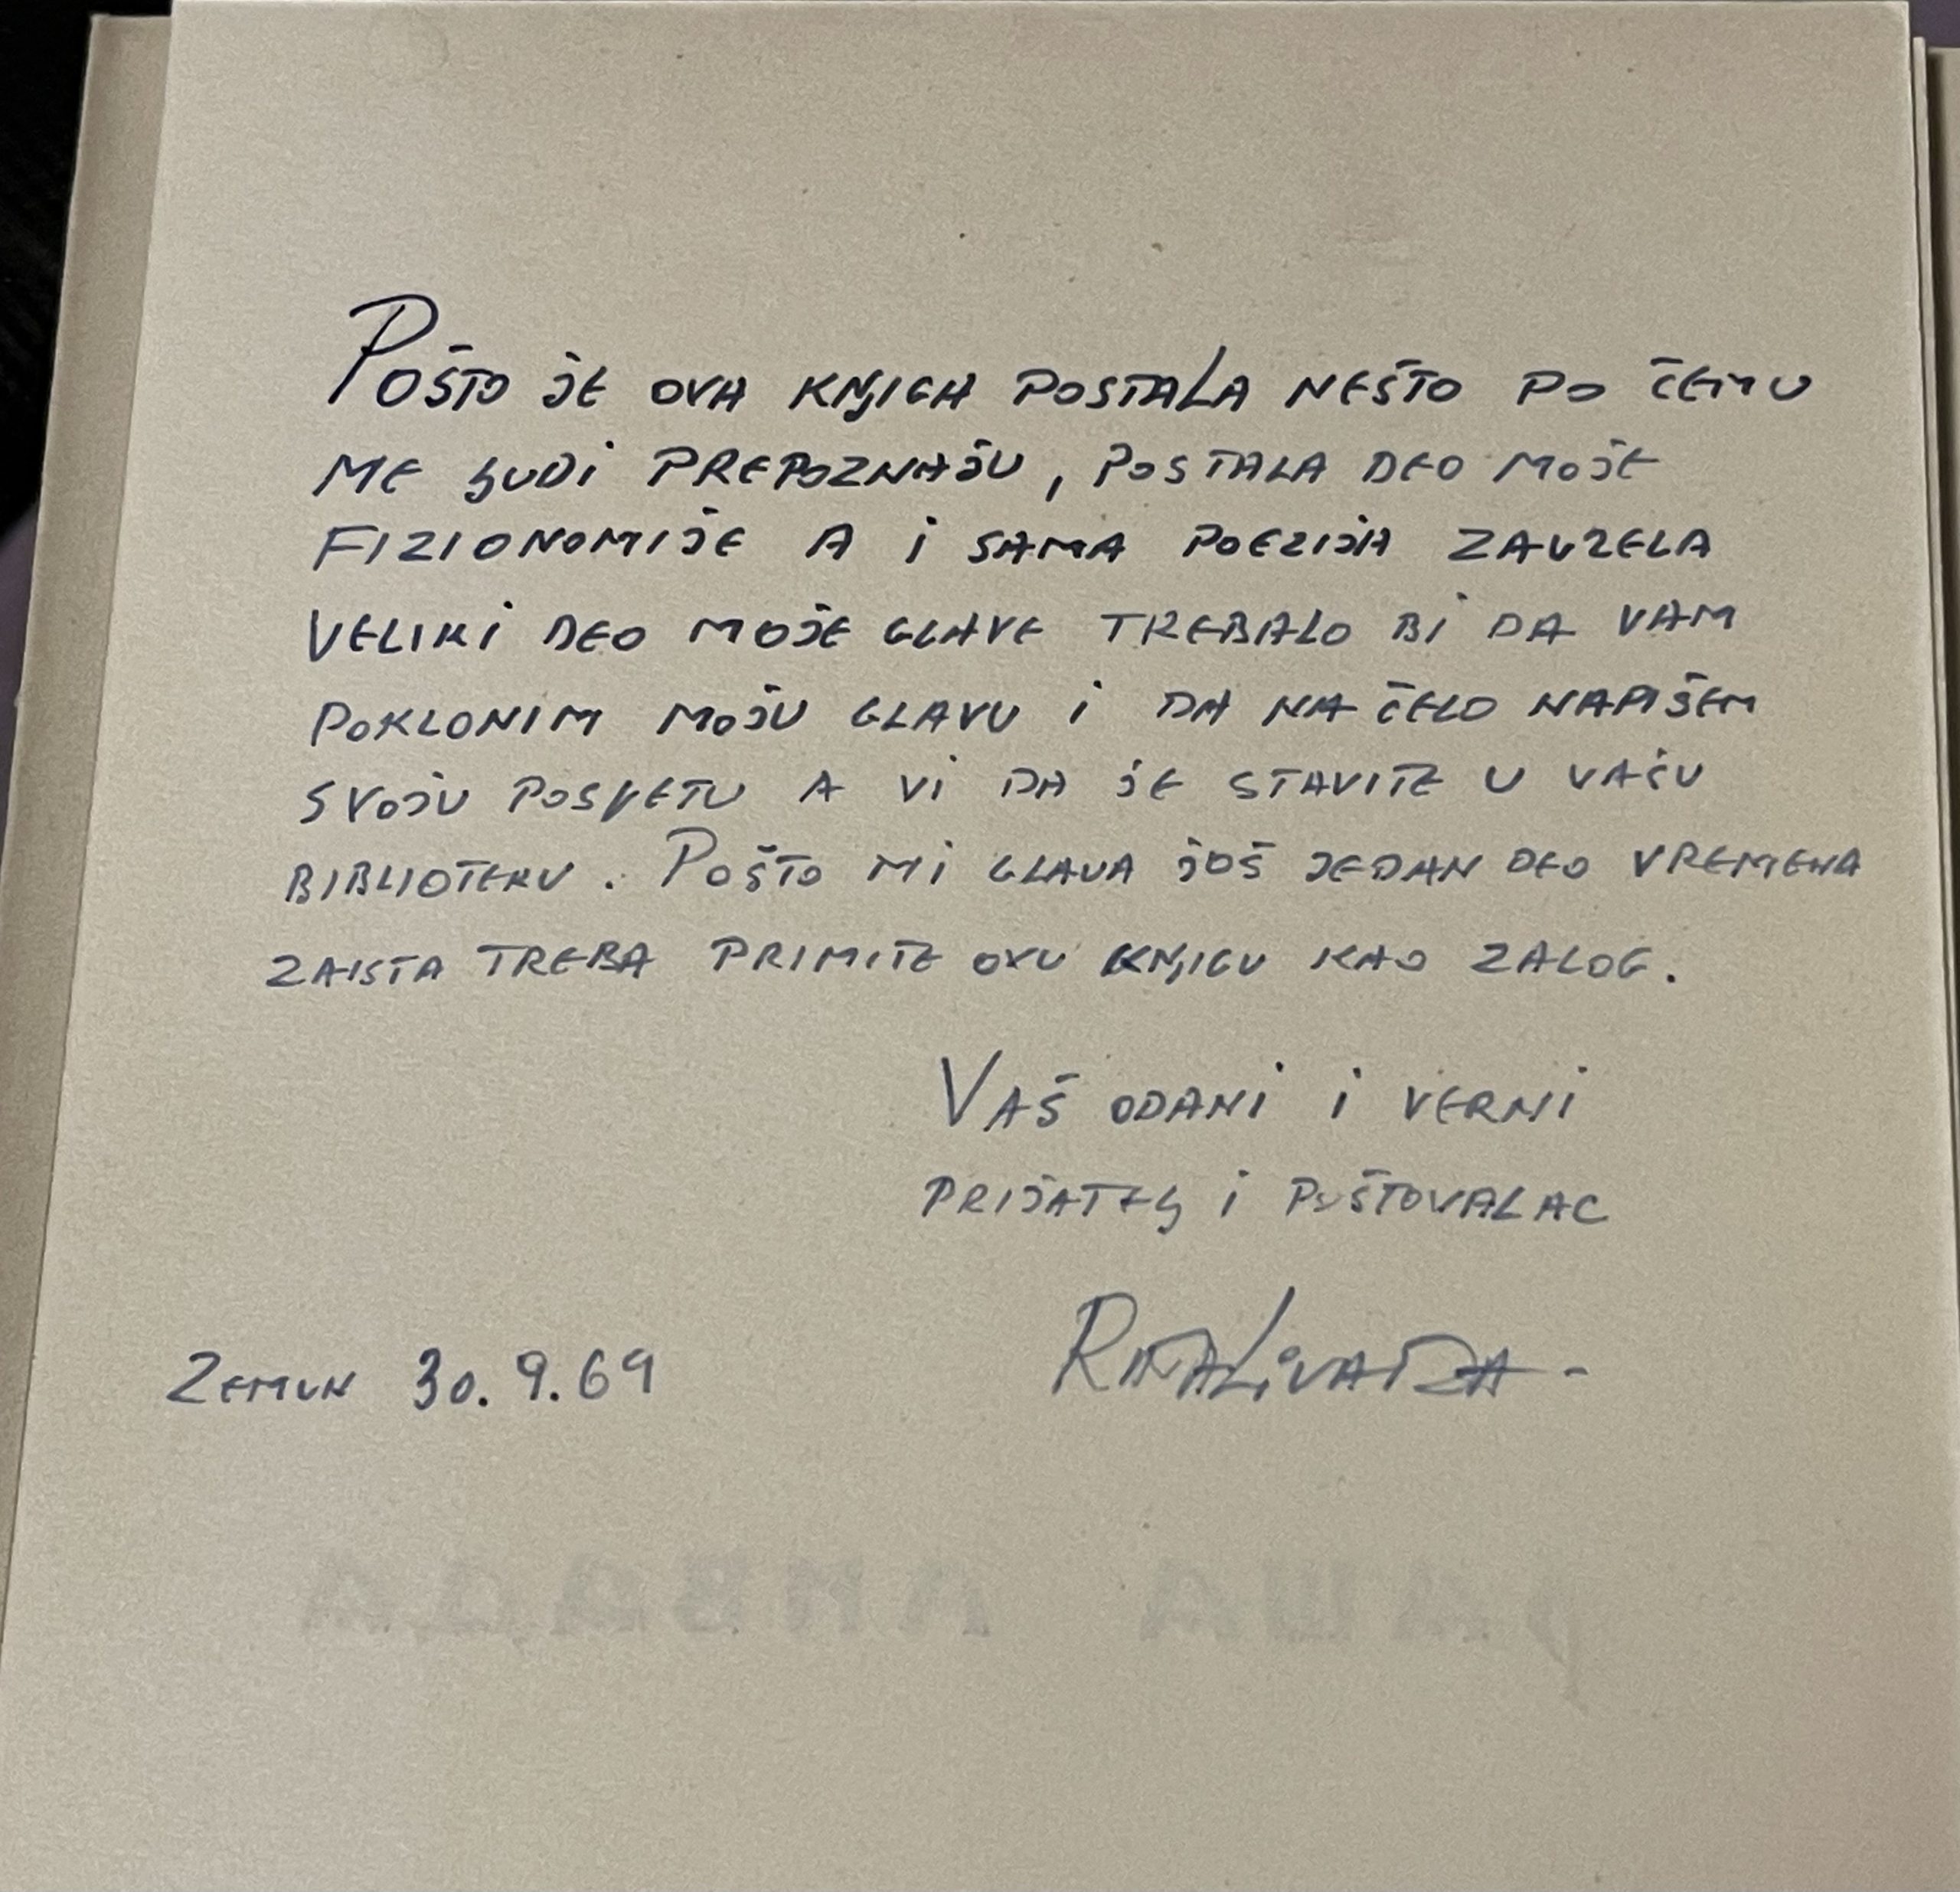 POŠTO JE OVA KNJIGA POSTALA NEŠTO PO ČEMU
ME LJUDI PREPOZNAJU, POSTALA DEO MOJE
FIZIONOMIJE A I SAMA POEZIJA ZAUZELA
VELIKI DEO MOJE GLAVE TREBALO BI DA VAM
POKLONIM MOJU GLAVU I DA NA ČELO NAPIŠEM
SVOJU POSVETU A VI DA JE STAVITE U VAŠU
BIBLIOTEKU. POŠTO MI GLAVA JOŠ JEDAN DEO VREMENA
ZAISTA TREBA PRIMITE OVU KNJIGU KAO ZALOG.
VAŠ ODANI I VERNI
PRIJATELJ I POŠTOVALAC
ZEMUN 30.9.69
РАША ЛИВАДА